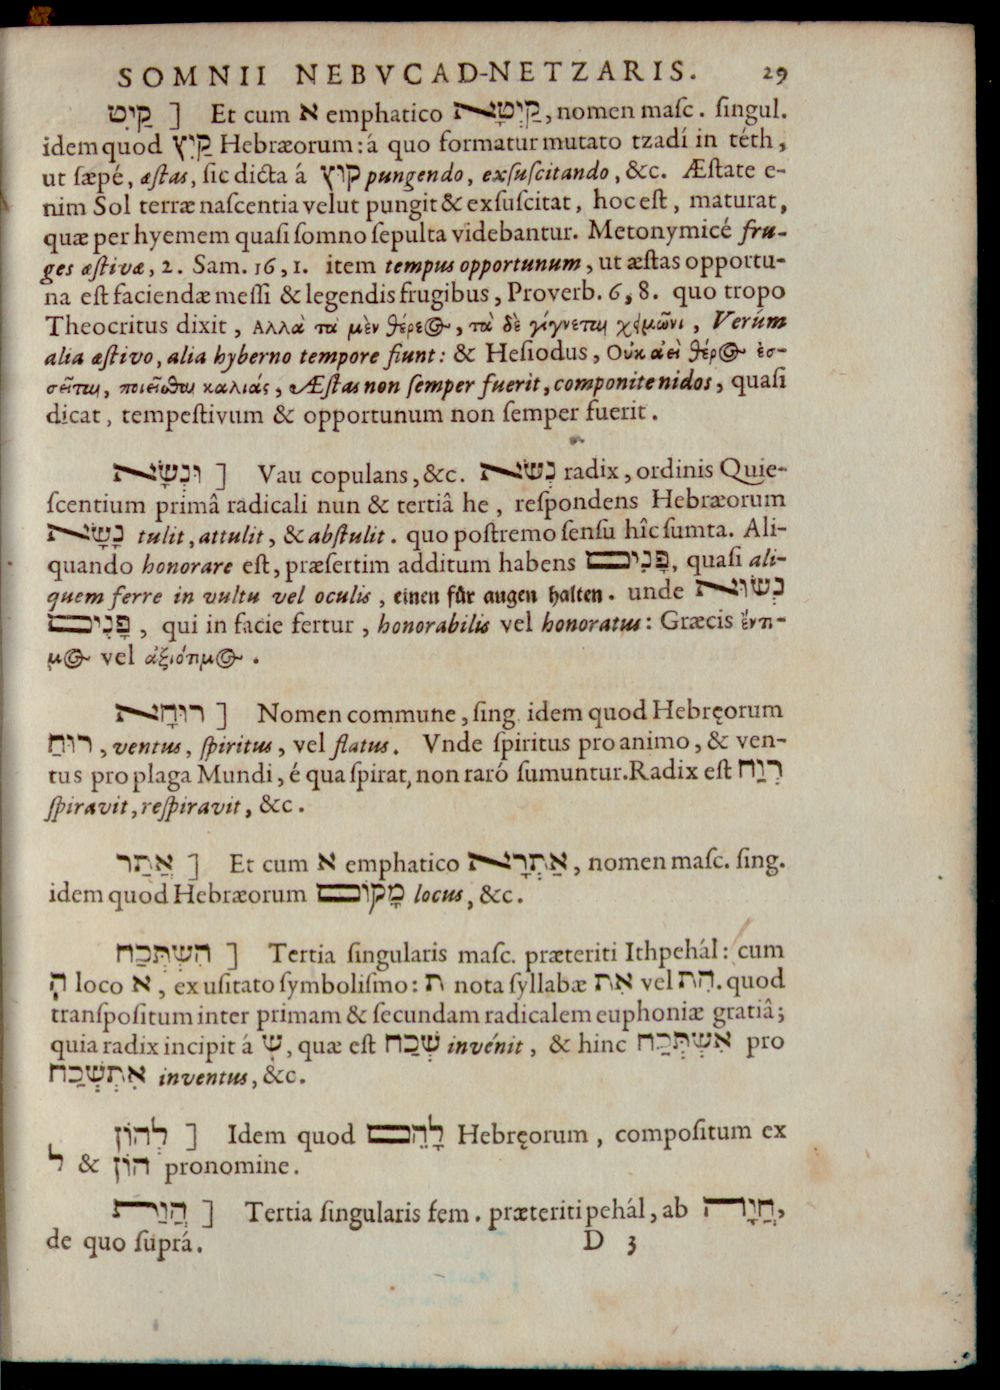 SOMNII NEBVCAD-NETZARIS. 29
קַיִט ] Et cum א emphatico קַיְטָא, nomen masc. singul.
idem quod קַיִץ Hebræorum: á quo formatur mutato tzadí in téth,
ut sæpé, æstas, sic dicta á קוּץ pungendo, exsuscitando, &c. Æstate e-
nim Sol terræ nascentia velut pungit & exsuscitat, hoc est, maturat,
quæ per hyemem quasi somno sepulta videbantur. Metonymicé fru-
ges æstivæ, 2. Sam. 16, 1. item tempus opportunum, ut æstas opportu-
na est faciendæ messi & legendis frugibus, Proverb. 6, 8. quo tropo
Theocritus dixit, Αλλὰ τὰ μὲν θέρεος, τὰ δὲ γίγνεται χείμωνι, Verúm
alia æstivo, alia hyberno tempore fiunt: & Hesiodus, Οὐκ ἀεὶ θέρος ἐσ-
σεῖται, ποιεῖσθαι καλιάς, Æstas non semper fuerit, componite nidos, quasi
dicat, tempestivum & opportunum non semper fuerit.
וּנְשָׂא ] Vau copulans, &c. נְשָׂא radix, ordinis Quie-
scentium primâ radicali nun & tertiâ he, respondens Hebræorum
נָשָׂא tulit, attulit, & abstulit. quo postremo sensu hîc sumta. Ali-
quando honorare est, præsertim additum habens פָּנִים, quasi ali-
quem ferre in vultu vel oculis, einen für augen halten. unde נְשׂוּא
פָּנִים, qui in facie fertur, honorabilis vel honoratus: Græcis ἔντι-
μος vel ἀξιότιμος.
רוּחָא ] Nomen commune, sing. idem quod Hebręorum
רוּחַ, ventus, spiritus, vel flatus. Vnde spiritus pro animo, & ven-
tus pro plaga Mundi, é qua spirat, non raró sumuntur. Radix est רָוַח
spiravit, respiravit, &c.
אֲתַר ] Et cum א emphatico אַתְרָא, nomen masc. sing.
idem quod Hebræorum מָקוֹם locus, &c.
הִשְׁתְּכַח ] Tertia singularis masc. præteriti Ithpehál: cum
הָ loco א, ex usitato symbolismo: ת nota syllabæ אִת vel הִת. quod
transpositum inter primam & secundam radicalem euphoniæ gratiâ;
quia radix incipit á שׁ, quæ est שְׁכַח invénit, & hinc אִשְׁתְּכַח pro
אִתְשְׁכַח inventus, &c.
לְהוֹן ] Idem quod לָהֵם Hebręorum, compositum ex
ל & הוֹן pronomine.
הֲוַת ] Tertia singularis fem. præteriti pehál, ab הֲוָה,
de quo suprá. D 3